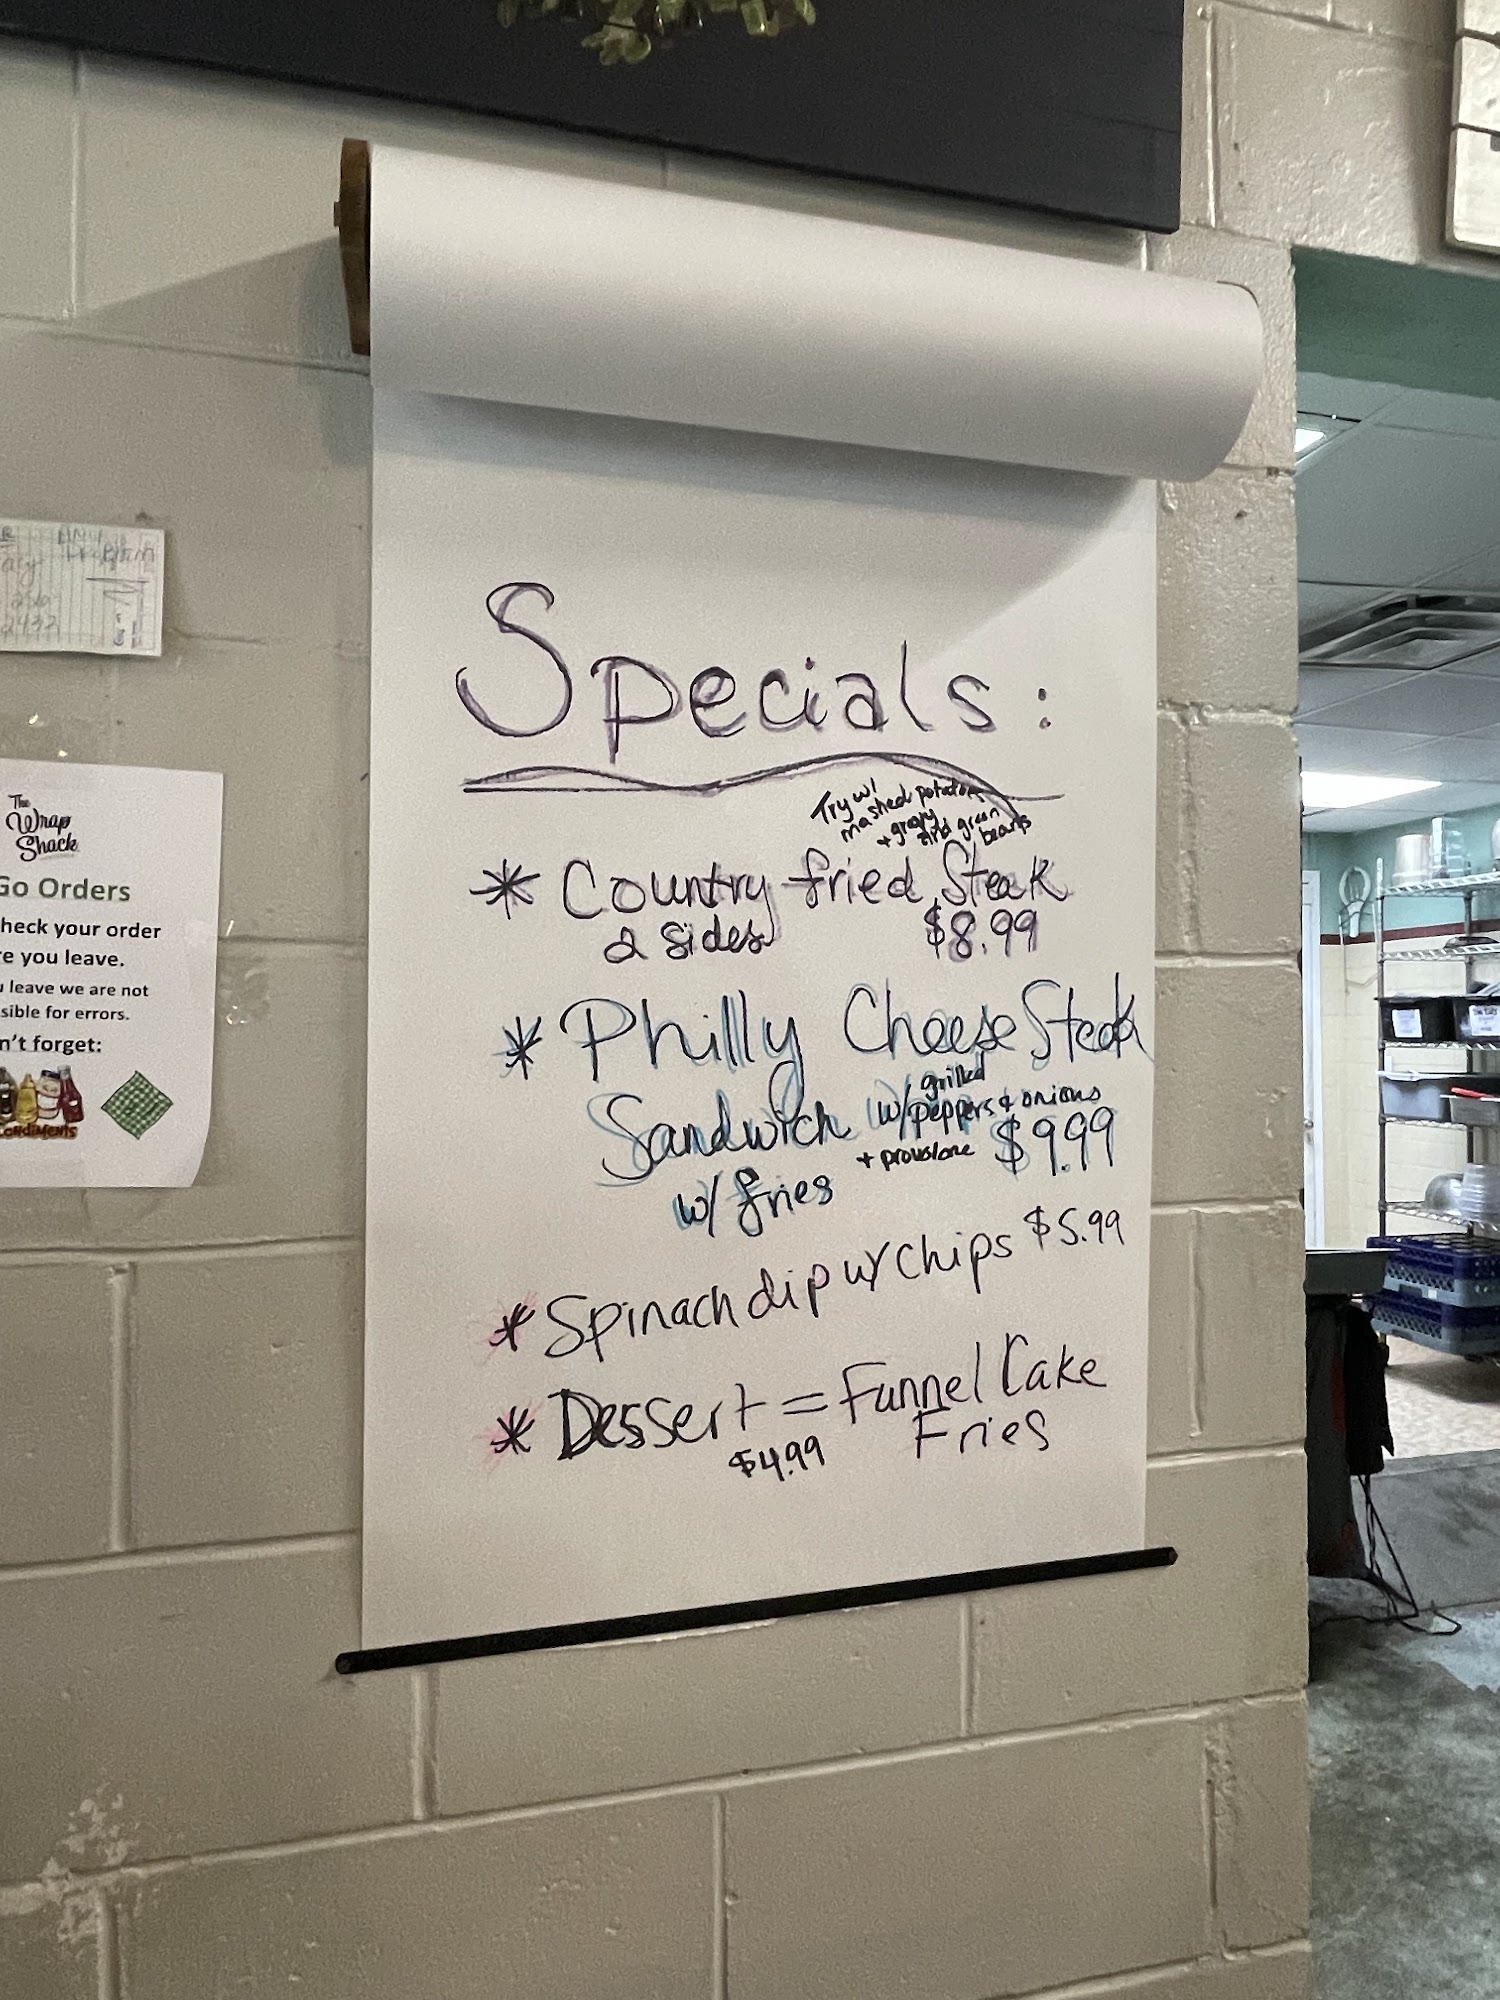 Specials:
Try w/
mashed potatoes
+ gravy
and green
beans
* Country fried Steak
2 sides $8.99
* Philly Cheese Steak
Sandwich w/ grilled
peppers + onions
+ provolone $9.99
w/ fries
* Spinach dip w/ chips $5.99
* Dessert = Funnel Cake
$4.99 Fries
The
Wrap
Shack
Go Orders
heck your order
e you leave.
u leave we are not
sible for errors.
n't forget:
CONDIMENTS
2432